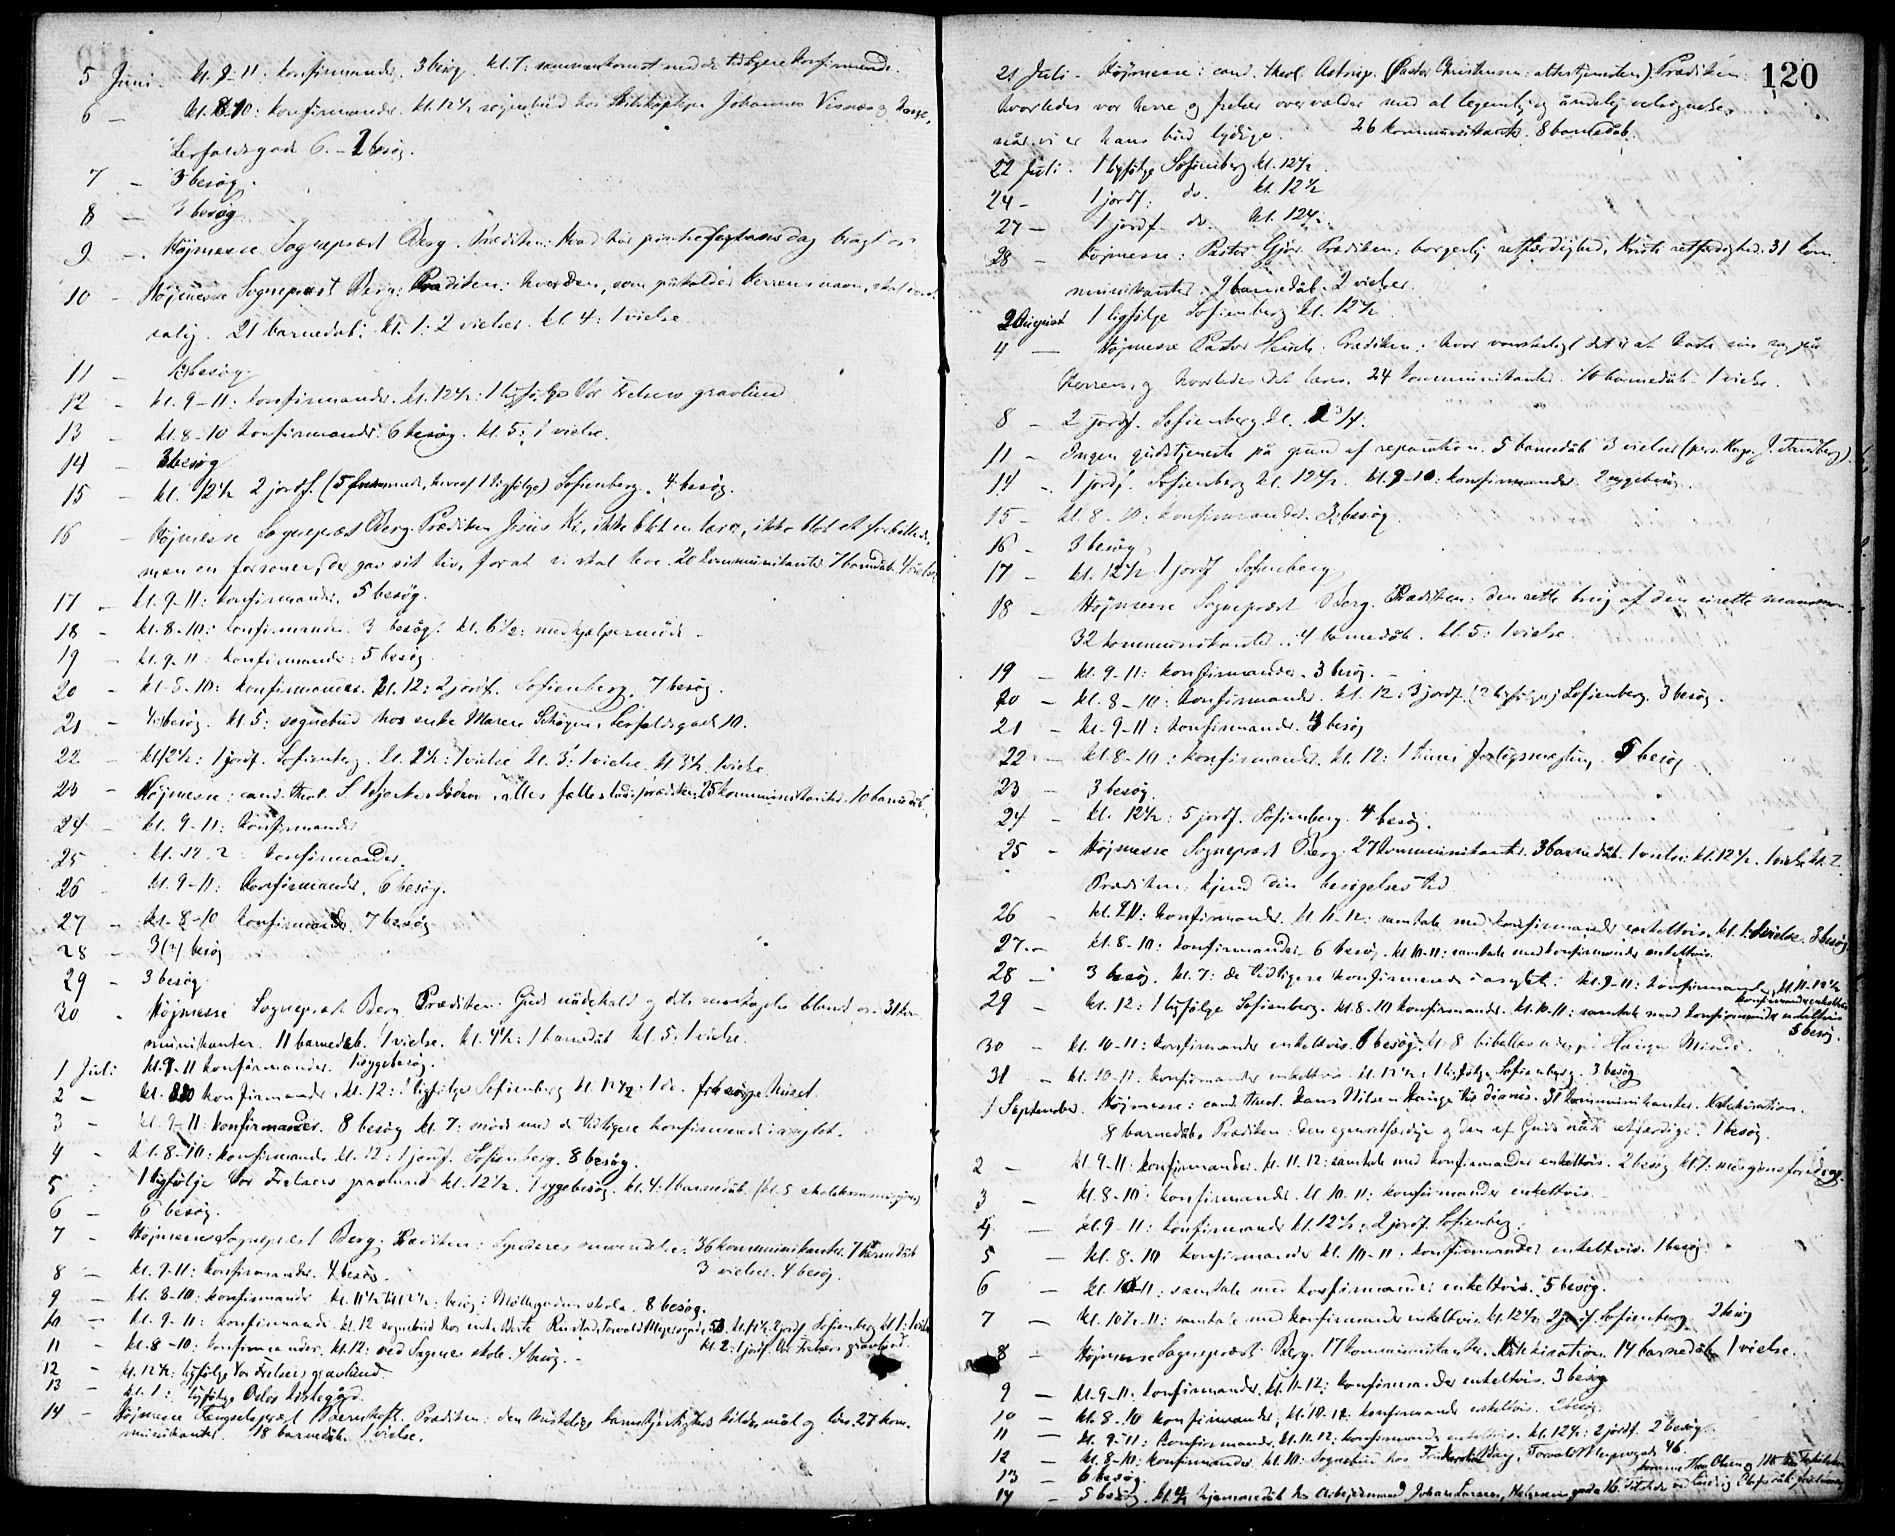 5 Juni. kl. 9-11: konfirmander. 3 besøg. kl. 7: sammenkomst med de tidligere konfirmander.
6 — kl. 8-10: konfirmander. kl. 12½ sognebud hos Johannes
6. – 2 besøg.
7 – 3 besøg.
8 — 3 besøg.
9 — Højmesse Sognepræst Berg. Prædiken: Hvad har pinsefestens dag bragt os
10 – Højmesse Sognepræst Berg: Prædiken: hver den, som påkalder Herrens navn, skal
salig. 21 barnedåb. kl. 1: 2 vielser. kl. 4: 1 vielse.
11 – besøg
12 – kl. 9-11: konfirmander. kl. 12½: 1 ligfølge Vor Frelsers gravlund
13 – kl. 8-10 konfirmander. 6 besøg. kl. 5: 1 vielse.
14 – 3 besøg
15 – kl. 12½ 2 jordf. (5 hvoraf 1 ligfølge) Sofienberg. 4 besøg.
16 – Højmesse Sognepræst Berg. Prædiken Jesus ikke blot en lærer, ikke blot et forbillede,
men en forsoner, der gav sit liv, for at vi skal leve. 20 kommunikanter. 7 barnedåb. 4 vielser
17 – kl. 9-11: konfirmander. 5 besøg.
18 – kl. 8-10: konfirmander. 3 besøg. kl. 6½: medhjælpermøde.
19 – kl. 9-11: konfirmander: 5 besøg
20 – kl. 8-10: konfirmander. kl. 12: 2 jordf. Sofienberg. 7 besøg.
21 – 4 besøg. kl. 5: sognebud hos enke Maren 10.
22 – kl. 12½: 1 jordf. Sofienberg. kl. 1 vielse kl. 3: 1 vielse. kl. 3½. 1 vielse
23 – Højmesse: cand. theol. S. 25 kommunikanter. 10 barnedåb.
24 – kl. 9-11: konfirmander
25 kl. 12-2: konfirmander.
26 kl. 9-11: Konfirmander. 6 besøg.
27 – kl. 8-10 konfirmander. 7 besøg
28 – 3 besøg
29 – 3 besøg
30 Højmesse Sognepræst Berg. Prædiken: Guds nådekald og dets modtagelse blandt os. 31 kom-
munikanter. 11 barnedåb. 1 vielse. kl. 4½: 1 barnedåb kl. 5: 1 vielse.
1 Juli kl. 9-11 konfirmander. 1 sygebesøg.
2 – kl. 8-10 konfirmander. kl. 12: 1 ligfølge Sofienberg kl. 12½: 1 do. fra sygehuset.
3 – kl. 9-11: konfirmander. 8 besøg kl. 7: møde med de tidligere konfirmerede i asylet.
4 – kl. 8-10: konfirmander kl. 12: 1 jordf. Sofienberg. 8 besøg.
5 – 1 ligfølge Vor Frelsers gravlund kl. 12½. 1 sygebesøg. kl. 4: 1 barnedåb. (kl. 5 skolekommission)
6 – 6 besøg.
7 – Højmesse Sognepræst Berg. Prædiken: Synderes omvendelse. 36 kommunikanter. 7 barnedåb
3 vielser. 4 besøg.
8 – kl. 9-11: konfirmander. 4 besøg.
9 – kl. 8-10: konfirmander kl. 11½ til 12½: besøg i Møllergadens skole. 8 besøg.
10 – kl. 9-11: konfirmander kl. 12 sognebud hos enke Berte Torvald Meyersgade kl. 12½ 2 jordf Sofienberg kl. 1: 1 vielse
kl. 2: 1 jordf. Vor Frelsers gravlund.
11 – kl. 8-10: konfirmander. kl. 12: ved skole. 4 besøg.
12 – kl. 12½: ligfølge Vor Frelsers gravlund.
13 – kl. 1: ligfølge Oslo kirkegård.
14 – Højmesse Fængselspræst Prædiken: den kristelige kjærligheds kilde, mål og 27 kom-
munikanter. 18 barnedåb. 1 vielse.
120
21 Juli. Højmesse: cand. theol. Astrup. (Pastor Christensen: altertjenesten). Prædiken:
hvorledes vor herre og frelser overvælder med al legemlig og åndelig velsignelse,
når vi er hans bud lydige. 26 kommunikanter. 8 barnedåb.
22 Juli. 1 ligfølge Sofienberg kl. 12½.
24 – 1 jordf. do. kl. 12½
27 — 1 jordf. do. kl. 12½.
28 — Højmesse: Pastor Gjør. Prædiken: borgerlig retfærdighed, Kristi retfærdighed. 31 kom-
munikanter. 9 barnedåb. 2 vielser.
2 August 1 ligfølge Sofienberg kl. 12½.
4 — Højmesse Pastor Prædiken: hvor vanskeligt det er at kaste sin sorg på
Herren, og hvorledes det læres. 24 kommunikanter. 10 barnedåb. 1 vielse.
8 – 2 jordf. Sofienberg kl.
11 – Ingen gudstjeneste på grund af reparation. 5 barnedåb 3 vielser (pers. Kap. J. Tandberg)
14 – 1 jordf. Sofienberg kl. 12½. kl. 9-10: konfirmander. 2 sygebesøg.
15 – kl. 8-10: konfirmander. 3 besøg.
16 – 3 besøg
17 – kl. 12½ 1 jordf Sofienberg
18 — Højmesse Sognepræst Berg. Prædiken: den rette brug af den urette mammon.
32 kommunikanter. 4 barnedåb. kl. 5: 1 vielse.
19 – kl. 9-11: konfirmander. 3 besøg.
20 – kl. 8-10: konfirmander. kl. 12: 3 jordf. (2 ligfølge) Sofienberg. 3 besøg.
21 – kl. 9-11: konfirmander. 4 besøg
22 – kl. 8-10: konfirmander. kl. 12: 1 forligsmægling. 5 besøg
23 – 3 besøg.
24 – kl. 12½: 5 jordf. Sofienberg. 4 besøg.
25 – Højmesse Sognepræst Berg. 27 kommunikanter. 3 barnedåb. 1 vielse. kl. 12½. 1 vielse kl. 2.
Prædiken: kjend din besøgelses tid
26 – kl. 9-11: konfirmander. kl. 11-12: samtale med konfirmander enkeltvis. kl. 1: 1 vielse. 3 besøg
27 – kl. 8-10: konfirmander. 6 besøg. kl. 10-11: samtale med konfirmander enkeltvis.
28 – 3 besøg. kl. 7: de tidligere konfirmerede i asylet. kl. 9-11: konfirmander, kl. 11-12½
konfirmander enkeltvis
29 – kl. 12: 1 ligfølge Sofienberg. kl. 8-10 konfirmander. kl. 10-11: samtale med konfirmander enkeltvis
5 besøg.
30 – kl. 10-11: konfirmander enkeltvis. 6 besøg. kl. 8 bibellæsning i Hauges Minde.
31 – kl. 10-11. konfirmander enkeltvis. kl. 12½: 1 ligfølge Sofienberg. 3 besøg
1 September. Højmesse: cand. theol. Hans Nilsen Hauge 31 kommunikanter. Katekisation.
8 barnedåb. Prædiken: Den egenretfærdige og den af Guds nåde retfærdige. 1 besøg.
2 – kl. 9-11: konfirmander. kl. 11-12: samtale med konfirmander enkeltvis. 2 besøg kl. 7: missionsforedrag.
3 – kl. 8-10: konfirmander. kl. 10-11: konfirmander enkeltvis.
4 – kl. 9-11: konfirmander kl. 12½: 2 jordf. Sofienberg.
5 – kl. 8-10 konfirmander kl. 10-11: konfirmander enkeltvis. 1 besøg.
6 – kl. 10-11: samtale med konfirmander enkeltvis. 5 besøg.
7 – kl. 10½-11: samtale med konfirmander enkeltvis. kl. 12½ 2 jordf. Sofienberg. 2 besøg
8 – Højmesse Sognepræst Berg. 17 kommunikanter. Katekisation. 14 barnedåb. 1 vielse.
9 – kl. 9-11: konfirmander. kl. 11-12: konfirmander enkeltvis. 3 besøg
10 – kl. 8-10 konfirmander, kl. 10-12: konfirmander enkeltvis. besøg.
11 – kl. 9-11: konfirmander. kl. 11-12: konfirmander enkeltvis. kl. 12½: 2 jordf. 2 besøg.
12 – kl. 8-10: konfirmander. kl. 10: Sognebud hos Torvald Meyersgade 46.
13 – 6 besøg.
14 – 5 besøg. kl. 4 hjemmedåb hos Arbejdsmand Johan Larsen, 16.